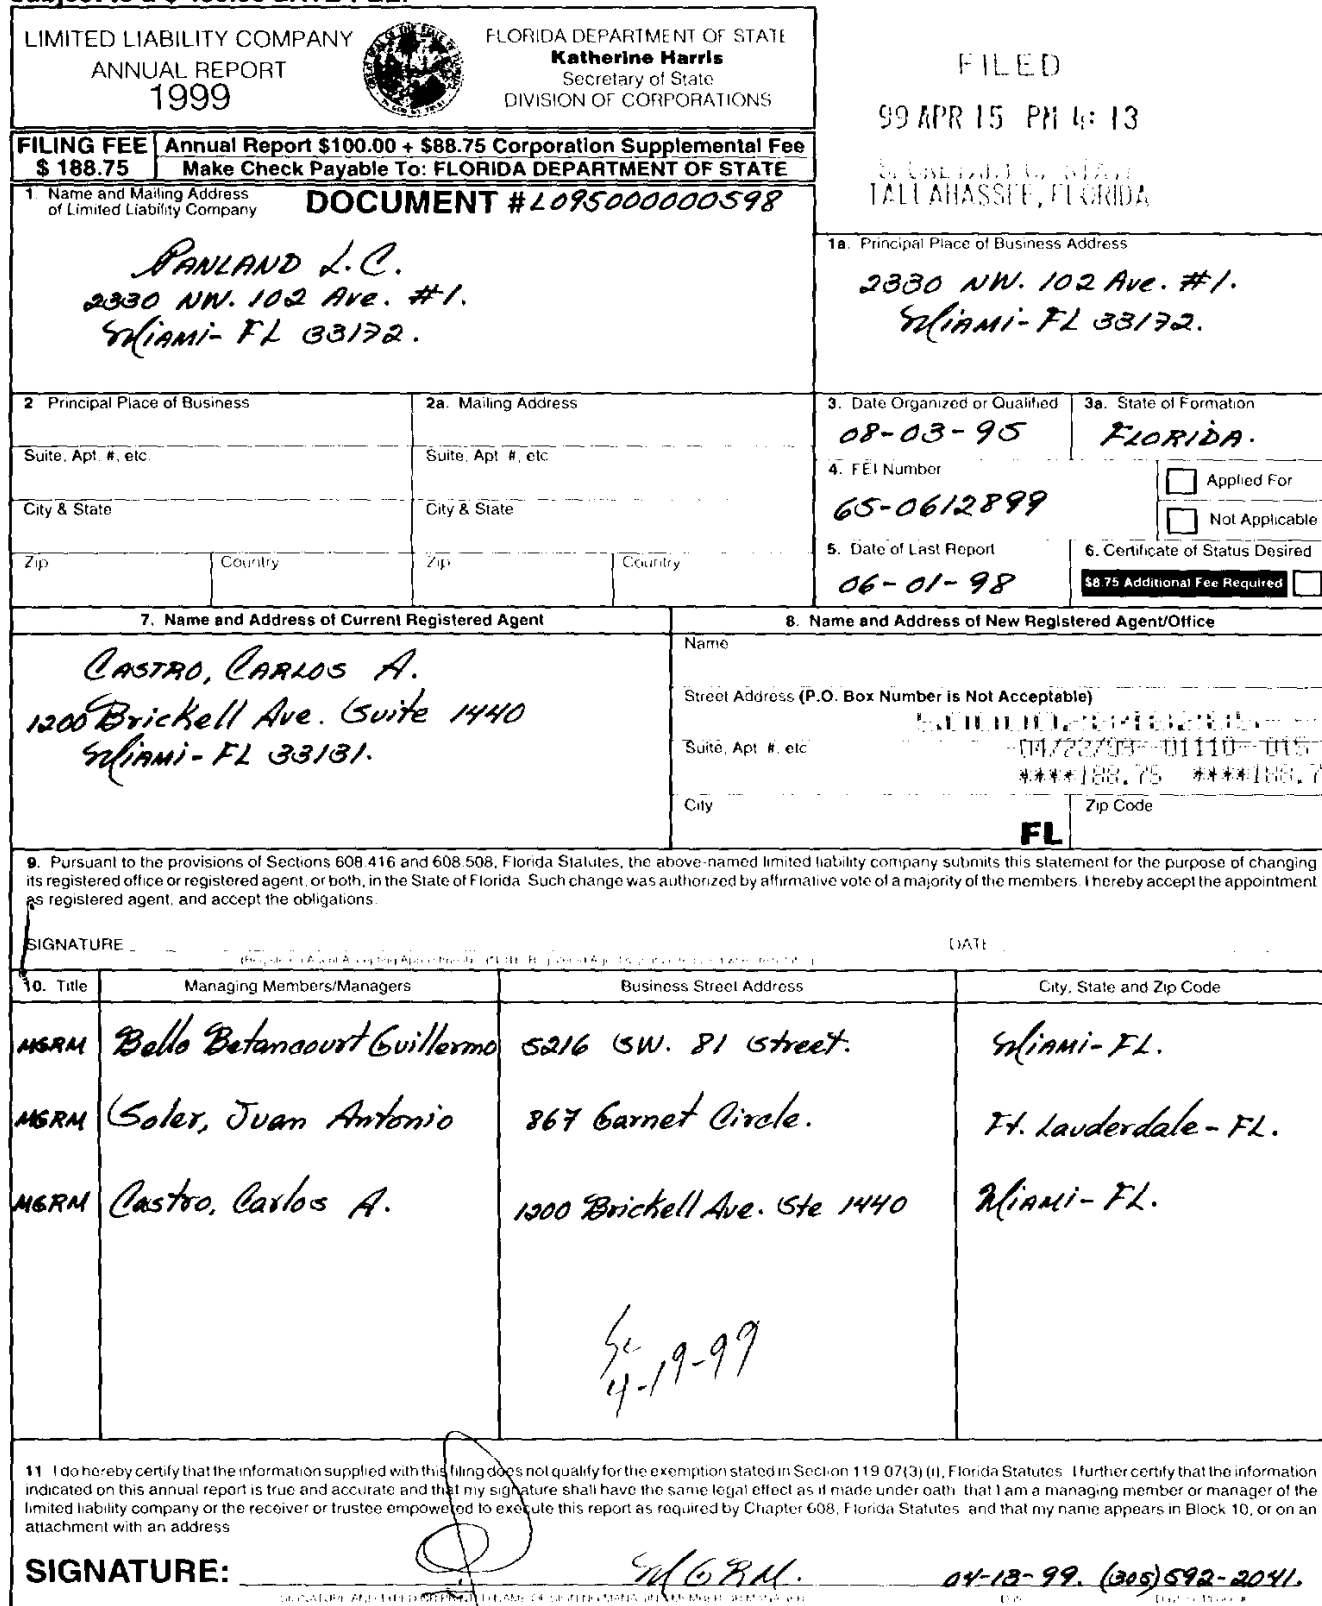 LIMITED LIABILITY COMPANY
ANNUAL REPORT
1999
FLORIDA DEPARTMENT OF STATE
Katherine Harris
Secretary of State
DIVISION OF CORPORATIONS
FILED
99 APR 15 PM 4: 13
TALLAHASSEE, FLORIDA
FILING FEE
$ 188.75
Annual Report $100.00 + $88.75 Corporation Supplemental Fee
Make Check Payable To: FLORIDA DEPARTMENT OF STATE
1. Name and Mailing Address
of Limited Liability Company
DOCUMENT # L095000000598
PANLAND L.C.
2330 NW. 102 Ave. #1.
Miami-FL 33172.
1a. Principal Place of Business Address
2330 NW. 102 Ave. #1.
Miami-FL 33172.
2 Principal Place of Business
2a. Mailing Address
Suite, Apt. #, etc.
Suite, Apt #, etc
City & State
City & State
Zip
Country
Zip
Country
3. Date Organized or Qualified
08-03-95
3a. State of Formation
FLORIDA.
4. FEI Number
65-0612899
Applied For
Not Applicable
5. Date of Last Report
06-01-98
6. Certificate of Status Desired
$8.75 Additional Fee Required
7. Name and Address of Current Registered Agent
CASTRO, CARLOS A.
1200 Brickell Ave. Suite 1440
Miami-FL 33131.
8. Name and Address of New Registered Agent/Office
Name
Street Address (P.O. Box Number is Not Acceptable)
Suite, Apt #, etc
****188.75
City
FL
Zip Code
9. Pursuant to the provisions of Sections 608.416 and 608.508, Florida Statutes, the above-named limited liability company submits this statement for the purpose of changing
its registered office or registered agent, or both, in the State of Florida Such change was authorized by affirmative vote of a majority of the members. I hereby accept the appointment
as registered agent, and accept the obligations.
SIGNATURE
DATE
10. Title
Managing Members/Managers
Business Street Address
City, State and Zip Code
MGRM Bello Betancourt Guillermo 5216 SW. 81 Street. Miami-FL.
MGRM Soler, Juan Antonio 867 Garnet Circle. Ft. Lauderdale-FL.
MGRM Castro, Carlos A. 1200 Brickell Ave. Ste 1440 Miami-FL.
4-19-99
11 I do hereby certify that the information supplied with this filing does not qualify for the exemption stated in Section 119 07(3) (i), Florida Statutes I further certify that the information
indicated on this annual report is true and accurate and that my signature shall have the same legal effect as if made under oath that I am a managing member or manager of the
limited liability company or the receiver or trustee empowered to execute this report as required by Chapter 608, Florida Statutes and that my name appears in Block 10, or on an
attachment with an address
SIGNATURE: MGRM. 04-13-99. (305)592-2041.